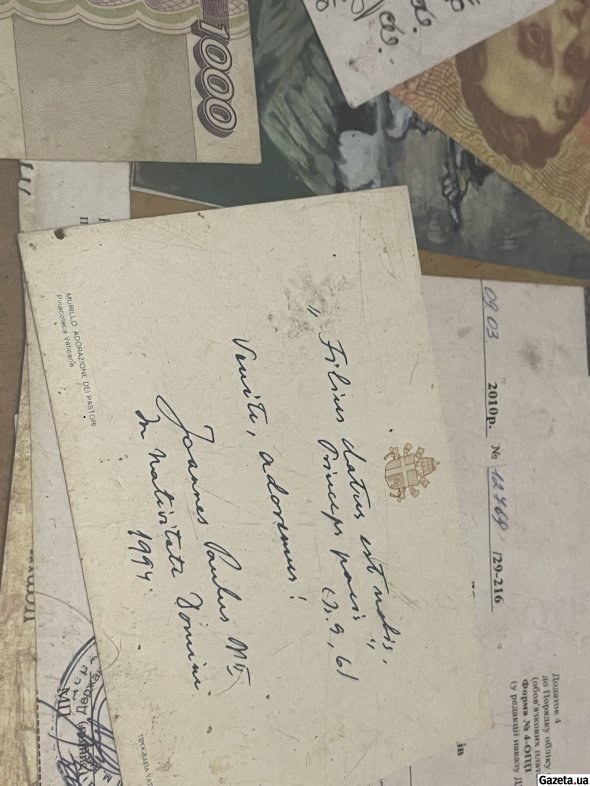 1000
do.
09 03. 2010р. № 12469 /29-216
Додаток 4
до Порядку обліку
(обов'язкових плат
Форма № 4-ОПП
(у редакції наказу Д
ів
„Filius datus est nobis,
Princeps pacis”
(Is. 9, 6)
Venite, adoremus!
Joannes Paulus PP. II
In Nativitate Domini
1994.
MURILLO: ADORAZIONE DEI PASTORI
Pinacoteca Vaticana
Gazeta.ua